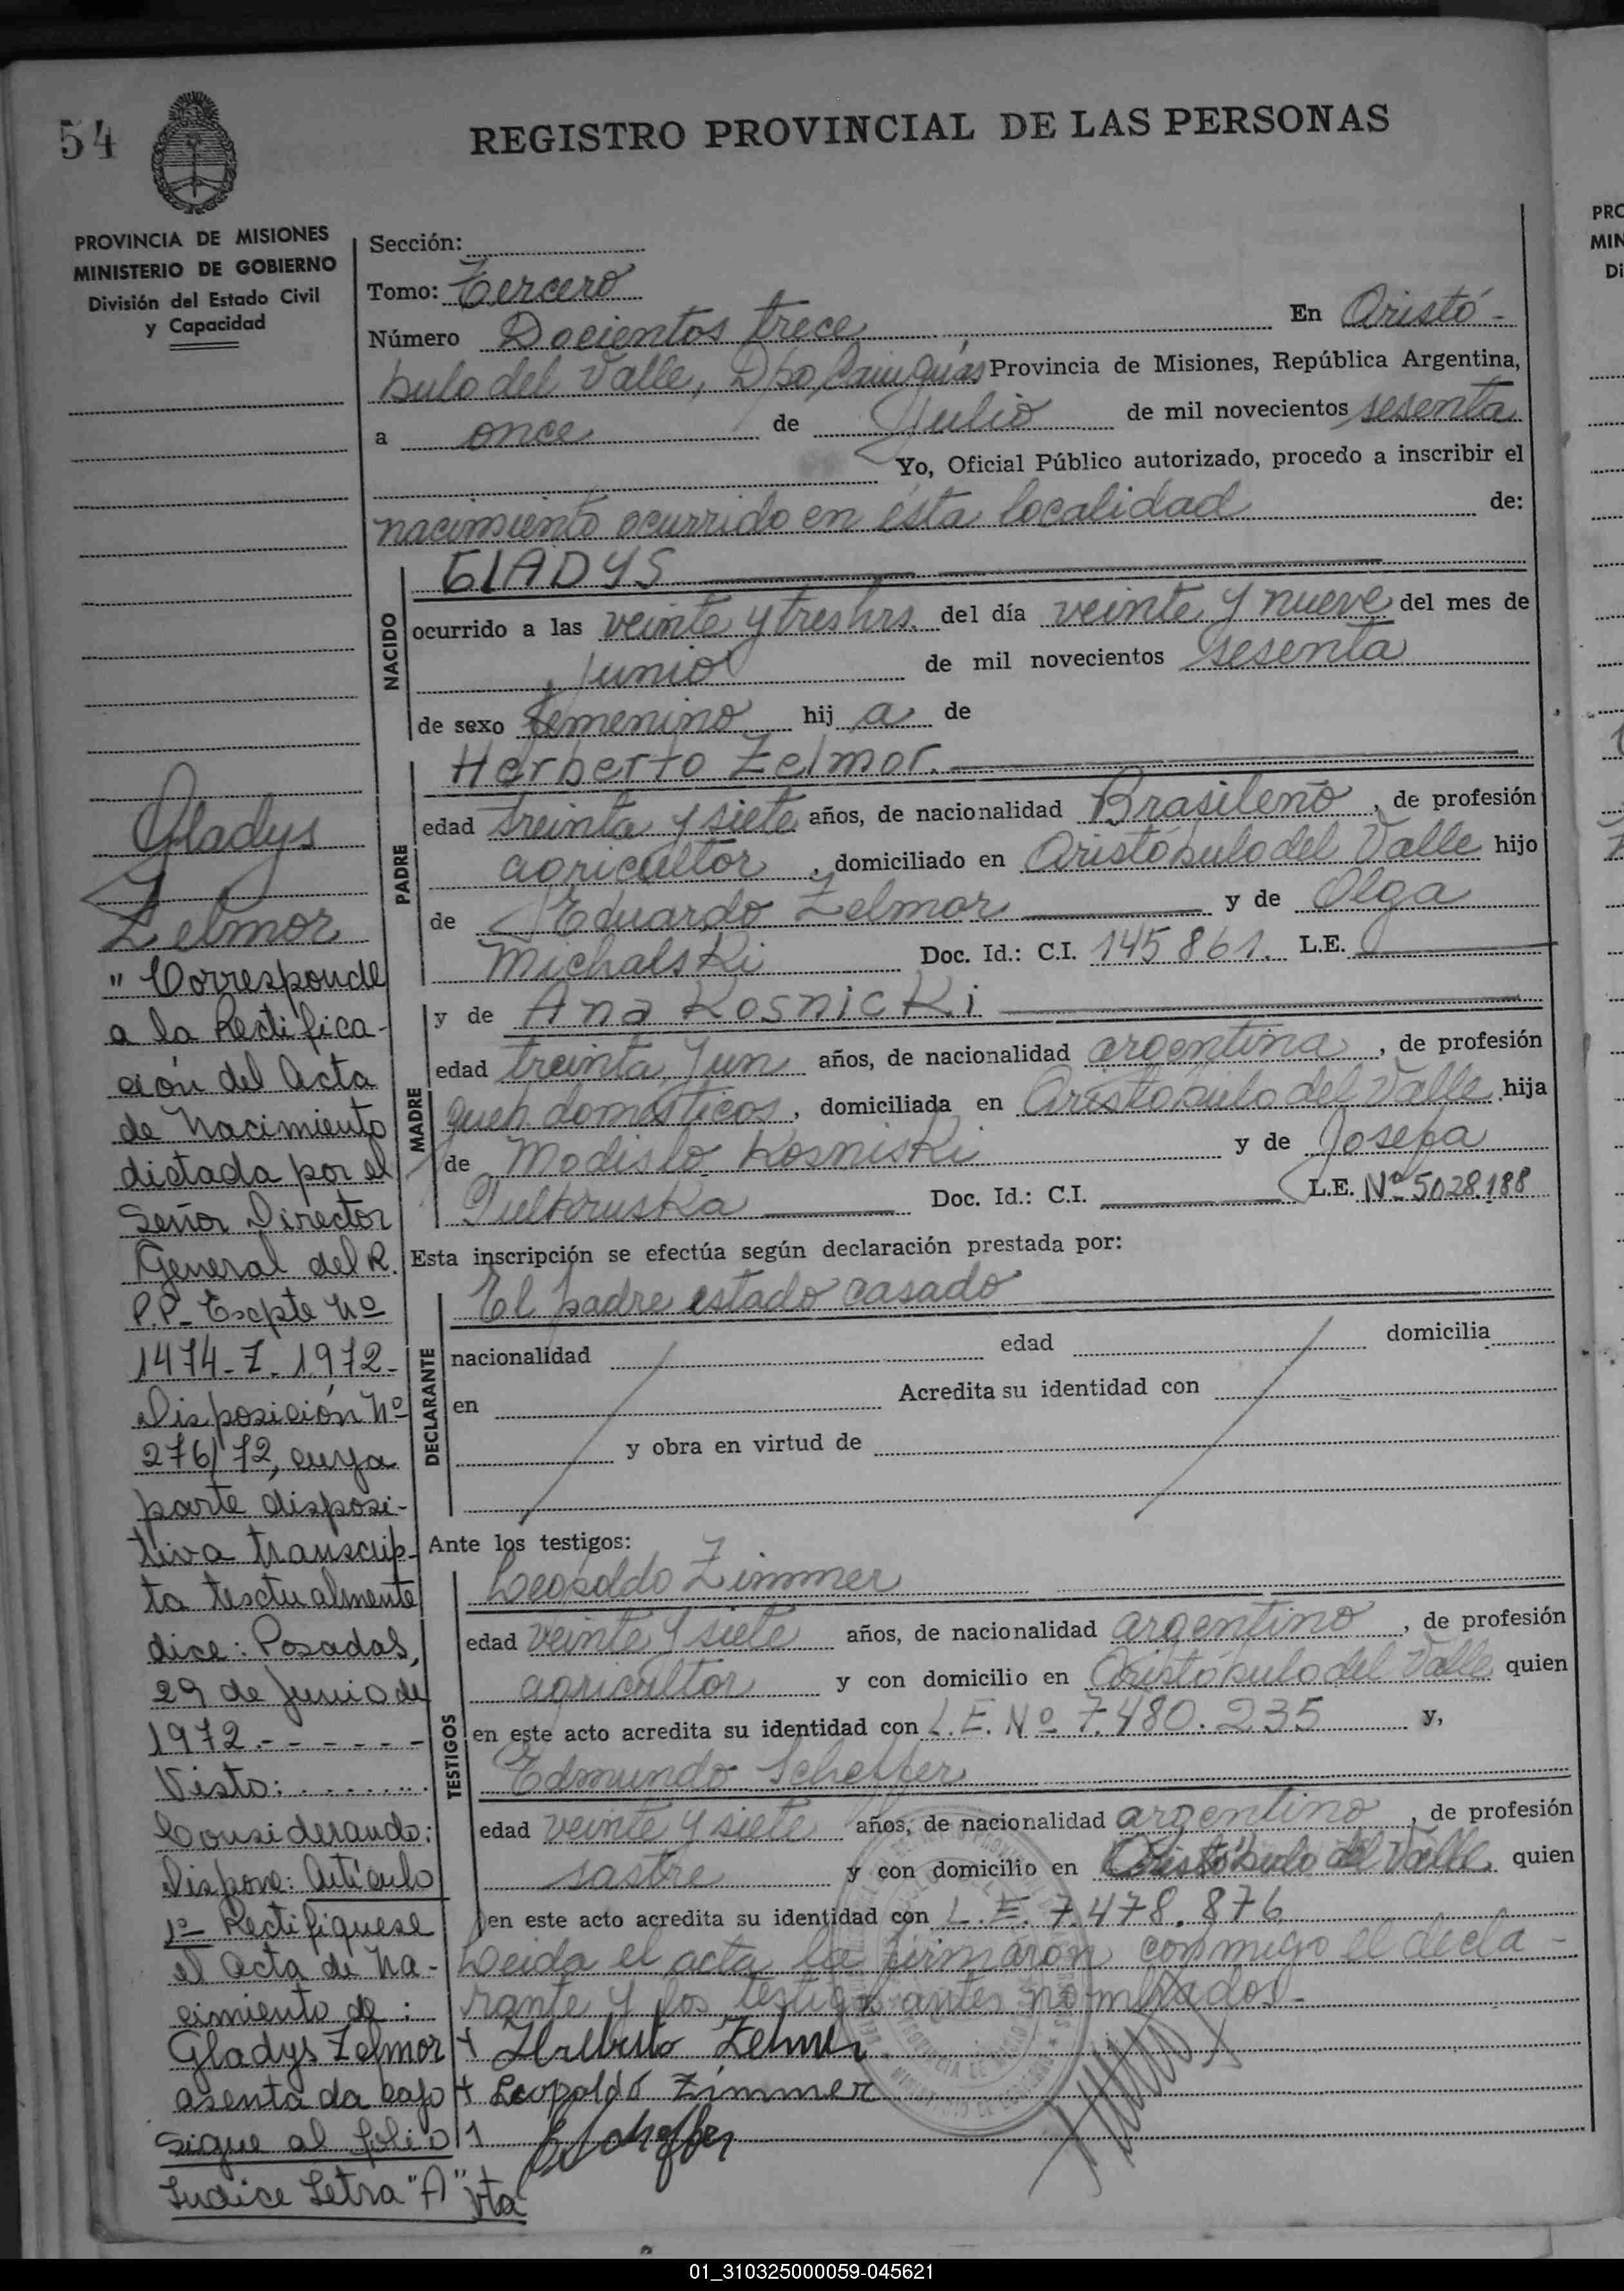 54
REGISTRO PROVINCIAL DE LAS PERSONAS
PROVINCIA DE MISIONES
MINISTERIO DE GOBIERNO
División del Estado Civil
y Capacidad
Sección:
Tomo: Tercero
Número Docientos trece En Aristó-
bulo del Valle, Dpo, Cainguás Provincia de Misiones, República Argentina,
a once de Julio de mil novecientos sesenta
Yo, Oficial Público autorizado, procedo a inscribir el
nacimiento ocurrido en ésta localidad de:
NACIDO
GlADYS
ocurrido a las veinte y tres hrs. del día veinte y nueve del mes de
junio de mil novecientos sesenta
de sexo femenino hij a de
PADRE
Herberto Zelmor.
edad treinta y siete años, de nacionalidad Brasileño, de profesión
agricultor, domiciliado en Aristóbulo del Valle hijo
de Eduardo Zelmor y de Olga
Michalski Doc. Id.: C.I. 145861. L.E.
MADRE
y de Ana Kosnicki
edad treinta y un años, de nacionalidad argentina, de profesión
queh. domésticos, domiciliada en Aristóbulo del Valle hija
de Modislo Kosniski y de Josefa
Doc. Id.: C.I. L.E. Nº 5028.188
Esta inscripción se efectúa según declaración prestada por:
DECLARANTE
El padre estado casado
nacionalidad edad domicilia
en Acredita su identidad con
y obra en virtud de
Ante los testigos:
TESTIGOS
Leopoldo Zimmer
edad veinte y siete años, de nacionalidad argentino, de profesión
agricultor y con domicilio en Aristóbulo del Valle quien
en este acto acredita su identidad con L.E. Nº 7.480.235 y,
Edmundo Scheffer
edad veinte y siete años, de nacionalidad argentino, de profesión
sastre y con domicilio en Aristóbulo del Valle quien
en este acto acredita su identidad con L.E. 7.478.876
Leida el acta la firmaron conmigo el decla-
rante y los testigos antes nombrados-
Herberto Zelmer
Leopoldo Zimmer
E Scheffer
Gladys
Zelmor
" Corresponde
a la Rectifica-
ción del Acta
de Nacimiento
dictada por el
Señor Director
General del R.
P.P- Exepte Nº
1474-Z-1972-
Disposición Nº
276/72, cuya
parte disposi-
tiva transcrip-
ta textualmente
dice: Posadas,
29 de Junio de
1972.- - - - - -
Visto: . . . . . . . .
Considerando:
Dispone: Artículo
1º- Rectifíquese
el Acta de Na-
cimiento de:
Gladys Zelmor
asentada bajo
Sigue al folio 1
Indice Letra "A" vta
01_310325000059-045621